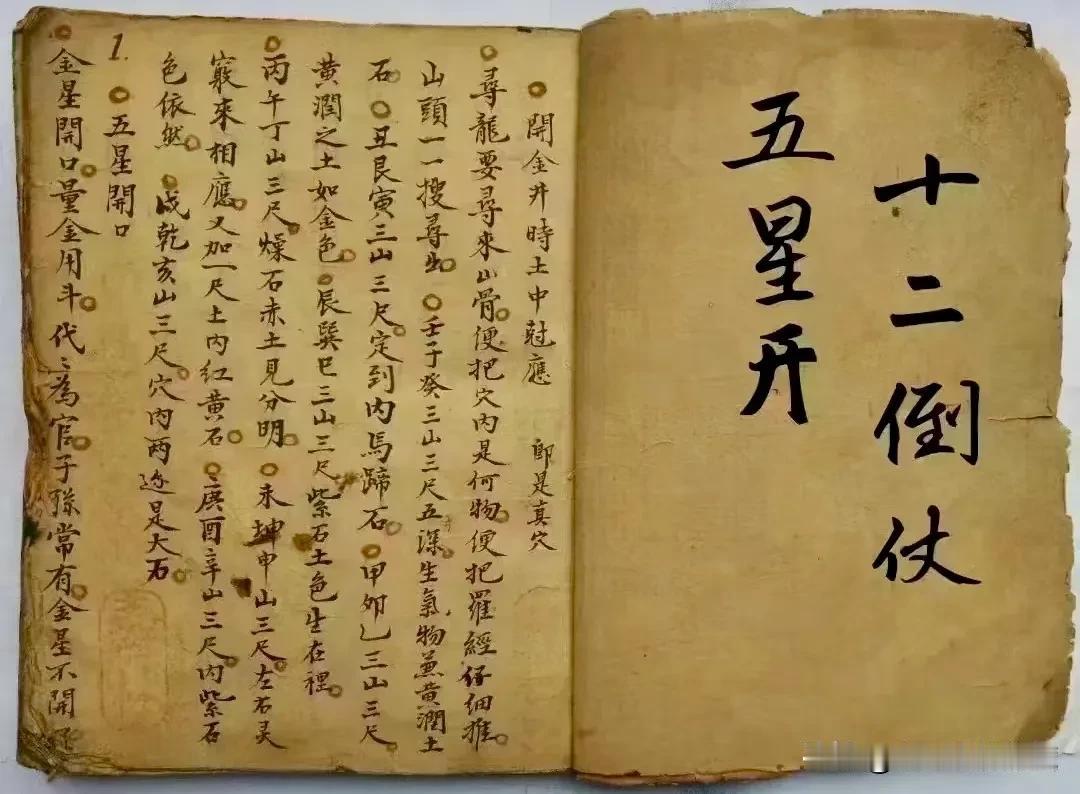 十二倒仗
五星开
○開金井時土中尅應 郎是真穴
○尋龍要尋來山骨。便把穴内是何物。便把羅經仔細推。
山頭一一搜尋出。○壬子癸三山三尺五深。生氣物兼黃潤土
石。○丑艮寅三山三尺。定到内馬蹄石。○甲卯乙三山三尺。
黃潤之土如金色。○辰巽巳三山三尺紫石土色生在裡。
○丙午丁山三尺。燥石赤土見分明。○未坤申山三尺。左右灵
來相應。又加一尺土内红黄石。○庚酉辛山三尺。内紫石
色依然。○戌乾亥山三尺。穴内兩边是大石。
1. ○五星開口
○金星開口。量金用斗。代〻為官。子孫常有。金星不開